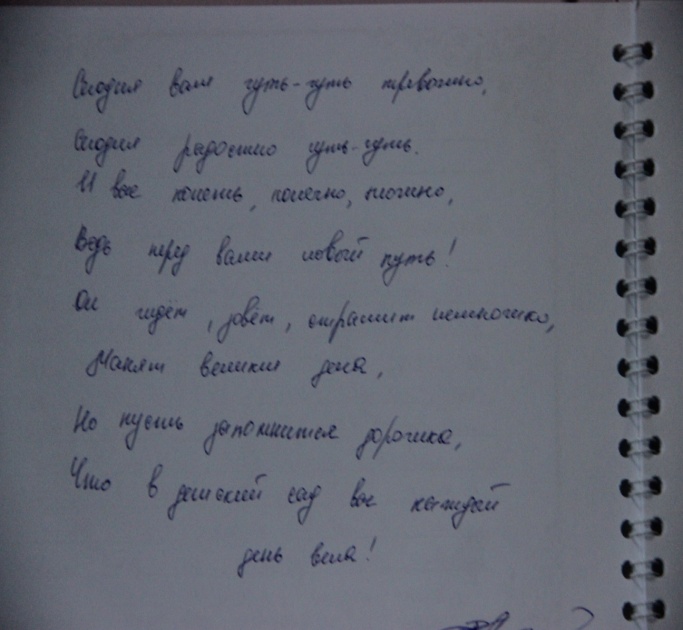 Сегодня вам чуть-чуть тревожно,
Сегодня радостно чуть-чуть.
И вас понять, конечно, можно,
Ведь перед вами новый путь!
Он ждёт, зовёт, страшит немножко,
Манят великие дела,
Но пусть запомнится дорожка,
Что в детский сад вас каждый
день вела!